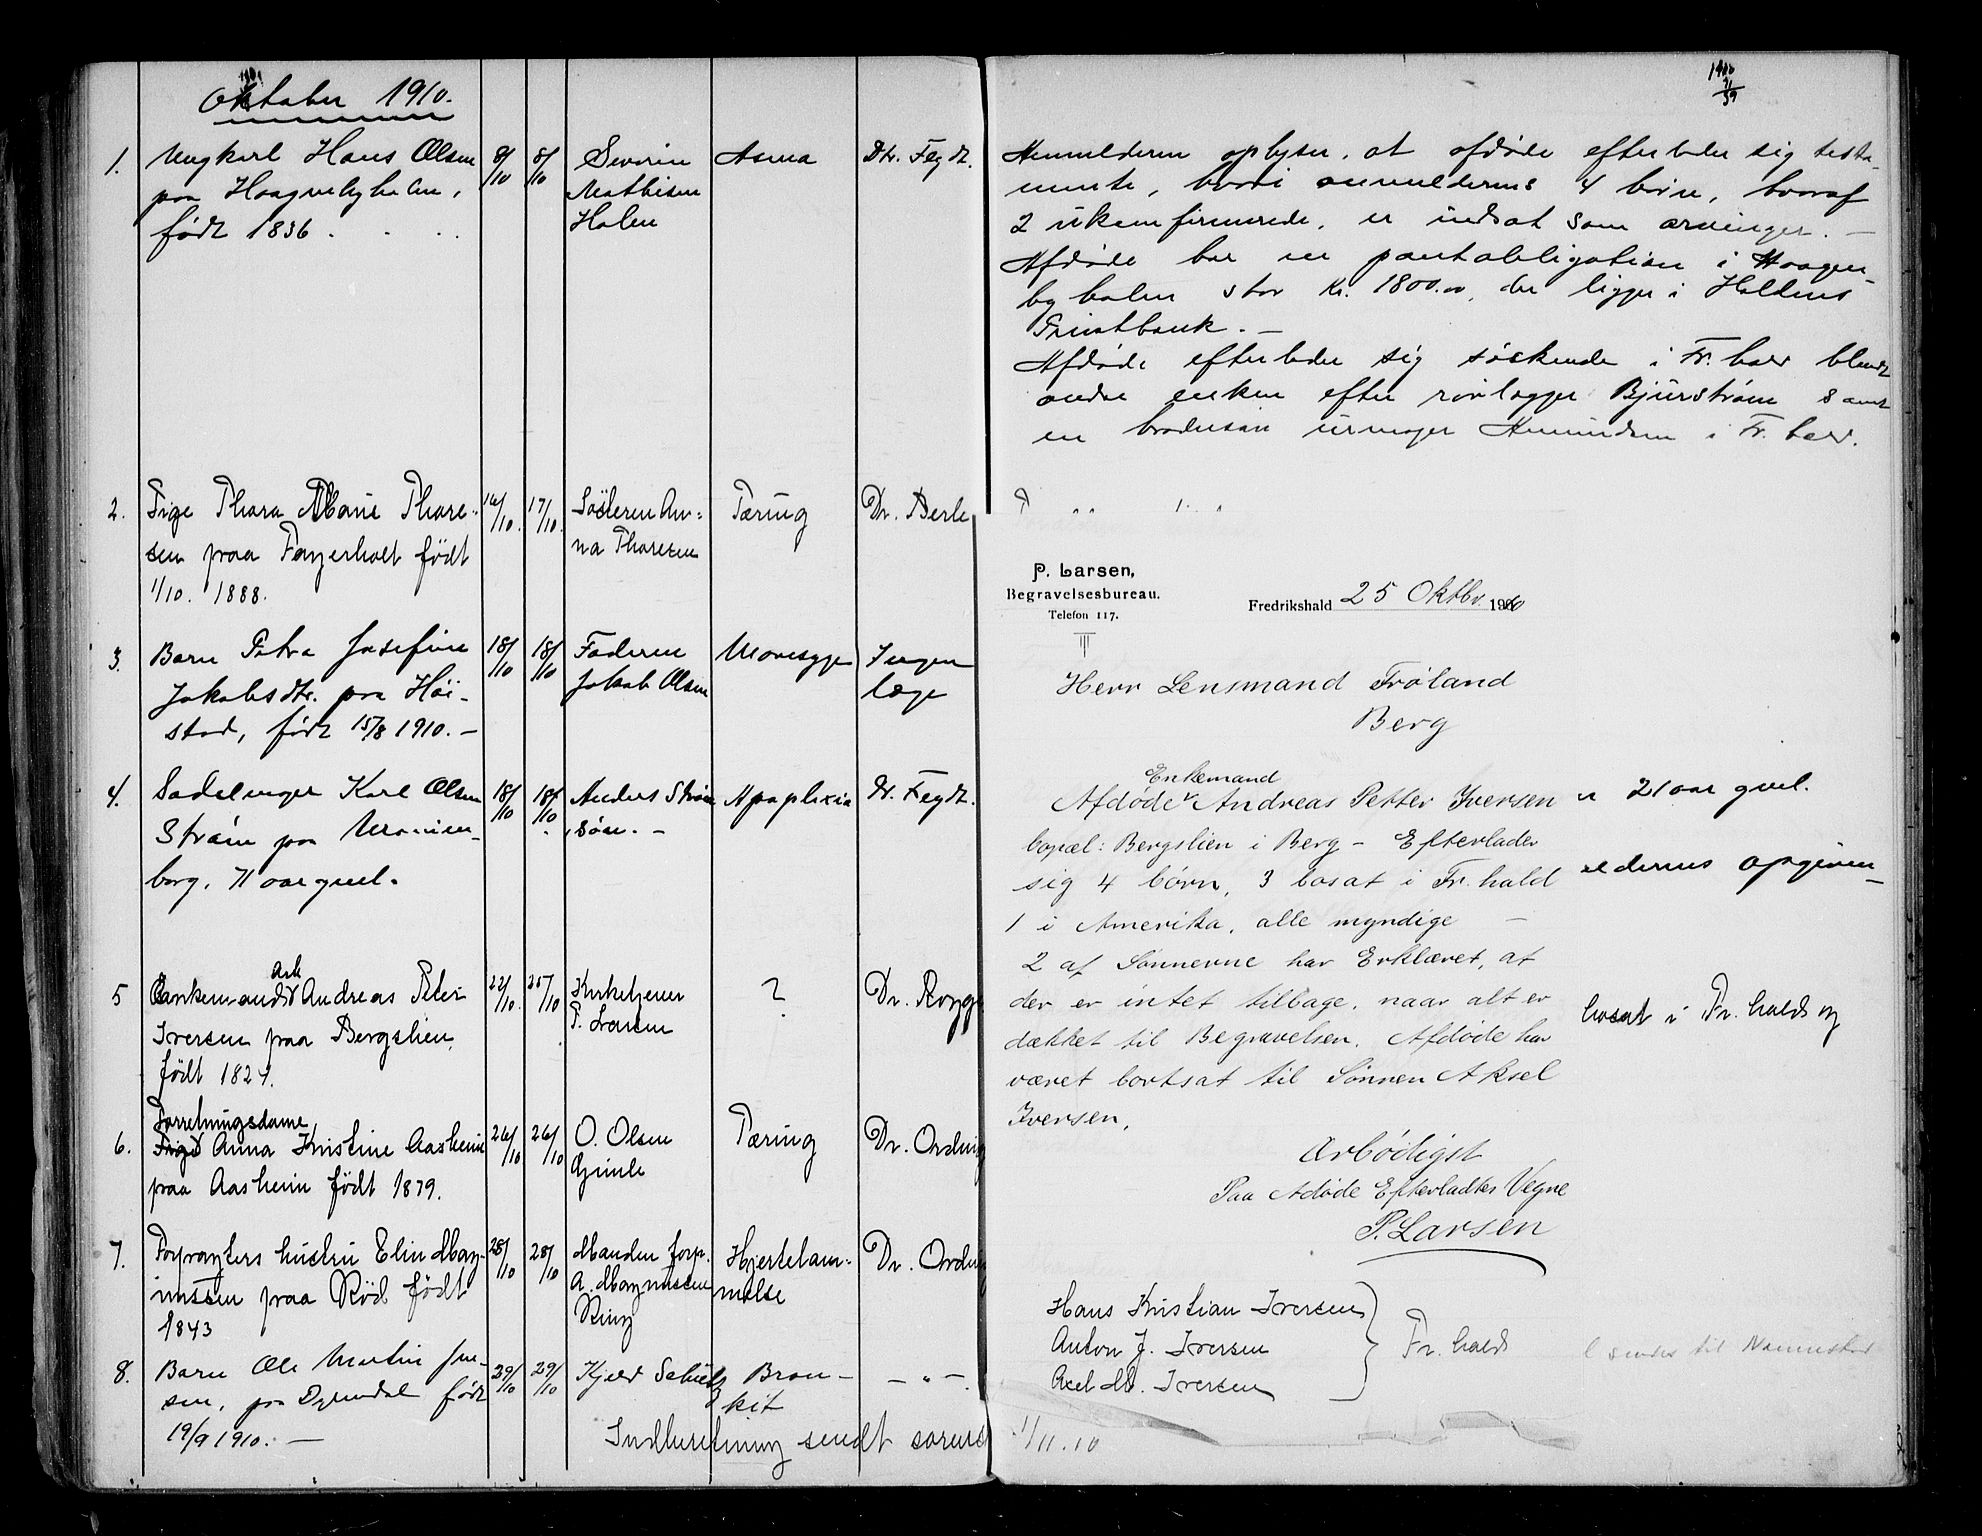 Oktober 1910.
1. Ungkarl Hans Olsen 8/10 8/10 Severin Asma Dr. Fegdt.
paa Haagnebyholm, Mathisen
født 1836. Holen
2. Pige Thora Marie Thore- 16/10. 17/10. Søsteren An- Tæring Dr. Berle
sen paa Fagerholt født na Thoresen
1/10. 1888.
3. Barn Petra Josefine 18/10 18/10 Faderen Mavesyge Ingen
Jakobsdtr. paa Høi- Jakob Olsen læge
stad, født 15/8 1910. –
4. Sadelmager Karl Olsen 18/10 18/10 Anders Strøm Apoplexia Dr. Fegdt.
Strøm paa , søn. –
borg, 71 aar gml.
5 Enkemand Andreas Peter 22/10. 25/10 Kirketjener ? Dr.
Iversen paa Bergslien, P. Larsen
født 1827.
Forretningsdame
6. Pige Anna Kristine Aasheim 26/10 26/10 O. Olsen Tæring Dr. Ordning
paa Aasheim født 1879. Grimle
7. Forpagters hustru Elin Mag- 28/10 28/10 Manden forp. Hjertelam- Dr. Ordning
nussen paa Röd født A. Magnussen melse
1843 Ring
8. Barn Ole Martin Jen- 29/10 29/10 Kjeld Schultz Bron- – „ –
sen, paa født kit
19/9 1910. –
Indberetning sendt sorensk 1/11.10
1910
Anmelderen oplyser, at afdøde efterlader sig testa-
mente, hvori anmelderens 4 børn, hvoraf
2 ukonfirmerede, er indsat som arvinger. –
Afdøde har en pantobligation i Haagne-
byholm stor Kr. 1800.00, der ligger i Haldens
Privatbank. –
Afdøde efterlader sig søskende i Fr.hald blandt
andre enken efter rørlægger Bjurstrøm samt
en brodersøn urmager Amundsen i Fr.hald.
P. Larsen,
Begravelsesbureau.
Telefon 117.
Fredrikshald 25 Oktbr. 1910
Herr Lensmand Frøland
Berg
Enkemand
Afdøde Andreas Petter Iversen
bopæl: Bergslien i Berg – Efterlader
sig 4 børn, 3 bosat i Fr.hald
1 i Amerika, alle myndige –
2 af Sønnerne har Erklæret, at
der er intet tilbage, naar alt er
dækket til Begravelsen. Afdøde har
været bortsat til Sønnen Aksel
Iversen.
Ærbødigst
Paa Adøde Efterladtes Vegne
P. Larsen
Hans Kristian Iversen
Anton J. Iversen Fr.hald
Axel M. Iversen
21 aar gml.
elderens opgiven-
bosat i Fr.hald og
sendes til